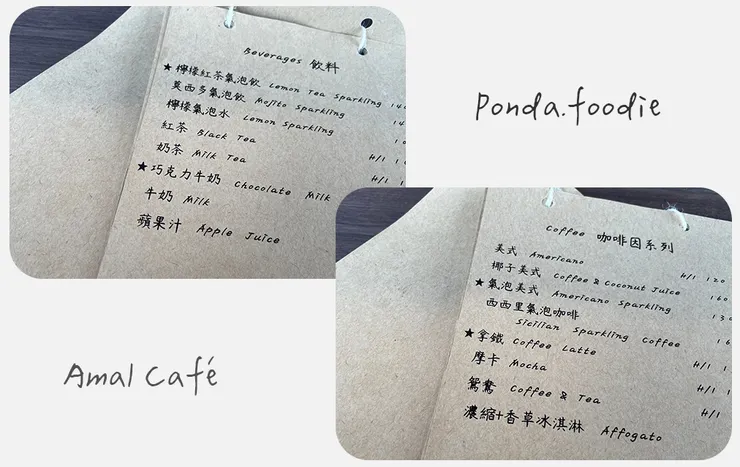 Beverages 飲料
★檸檬紅茶氣泡飲 Lemon Tea Sparkling 140
莫西多氣泡飲 Mojito Sparkling 14
檸檬氣泡水 Lemon Sparkling
紅茶 Black Tea 1
奶茶 Milk Tea H/I 1
★巧克力牛奶 Chocolate Milk H/I
牛奶 Milk
蘋果汁 Apple Juice
Ponda.foodie
Coffee 咖啡因系列
美式 Americano H/I 120
椰子美式 Coffee & Coconut Juice 160
★氣泡美式 Americano Sparkling 130
西西里氣泡咖啡
Sicilian Sparkling Coffee 16
★拿鐵 Coffee Latte H/I 1
摩卡 Mocha H/I 1
鴛鴦 Coffee & Tea H/I
濃縮+香草冰淇淋 Affogato
Amal Café